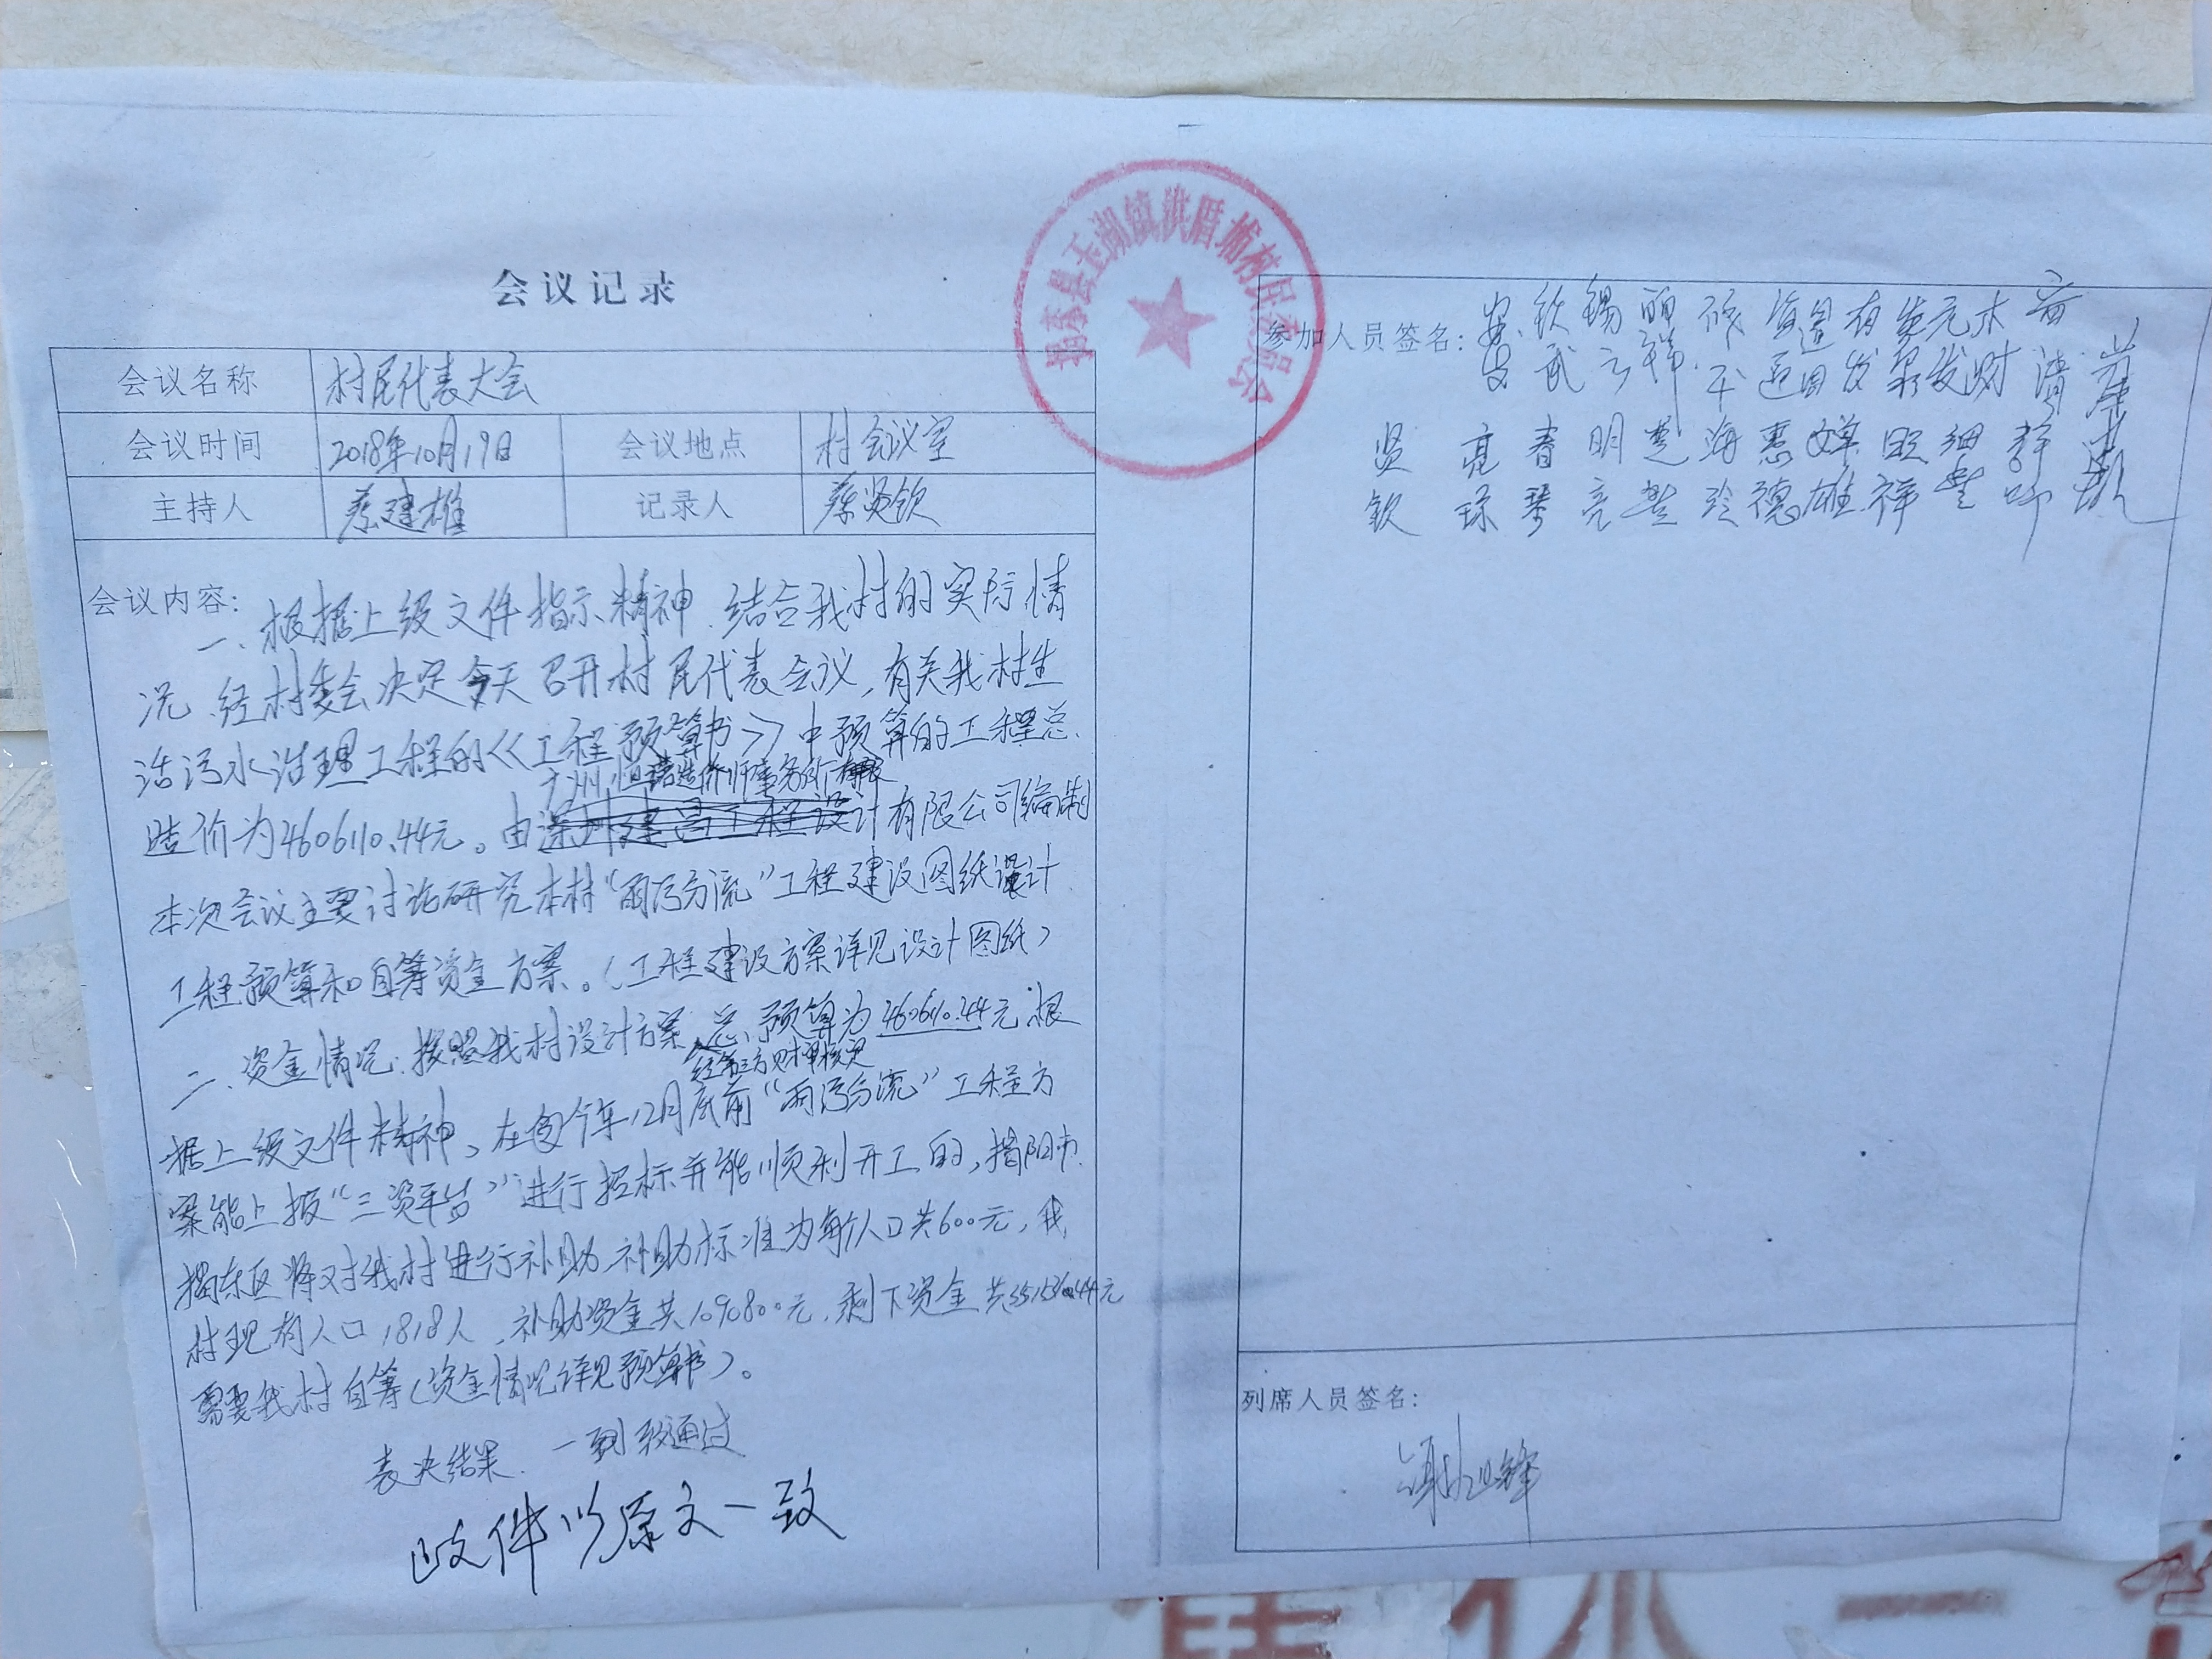 会议记录
会议名称 村民代表大会
会议时间 2018年10月19日 会议地点 村会议室
主持人 蔡建雄 记录人 蔡贤钦
会议内容:
一、根据上级文件指示精神、结合我村的实际情
况、经村委会决定今天召开村民代表会议,有关我村生
活污水治理工程的《工程预算书》中预算的工程总
广州恒诺造价师事务所有限
造价为4606110.44元。由深圳建昌工程设计有限公司编制
本次会议主要讨论研究本村“雨污分流”工程建设图纸设计
工程预算和自筹资金方案。(工程建设方案详见设计图纸)
二、资金情况:按照我村设计方案,总预算为4606110.44元,根
经第三方财审核定
据上级文件精神、在今年12月底前“雨污分流”工程方
案能上报“三资平台”进行招标并能顺利开工的,揭阳市
揭东区将对我村进行补助,补助标准为每个人口共600元,我
村现有人口1818人,补助资金共1090800元,剩下资金共3515310.44元
需要我村自筹(资金情况详见预算书)。
表决结果:一致通过
此件以原文一致
揭东县玉湖镇洪盾埔村民委员会
参加人员签名:
列席人员签名: